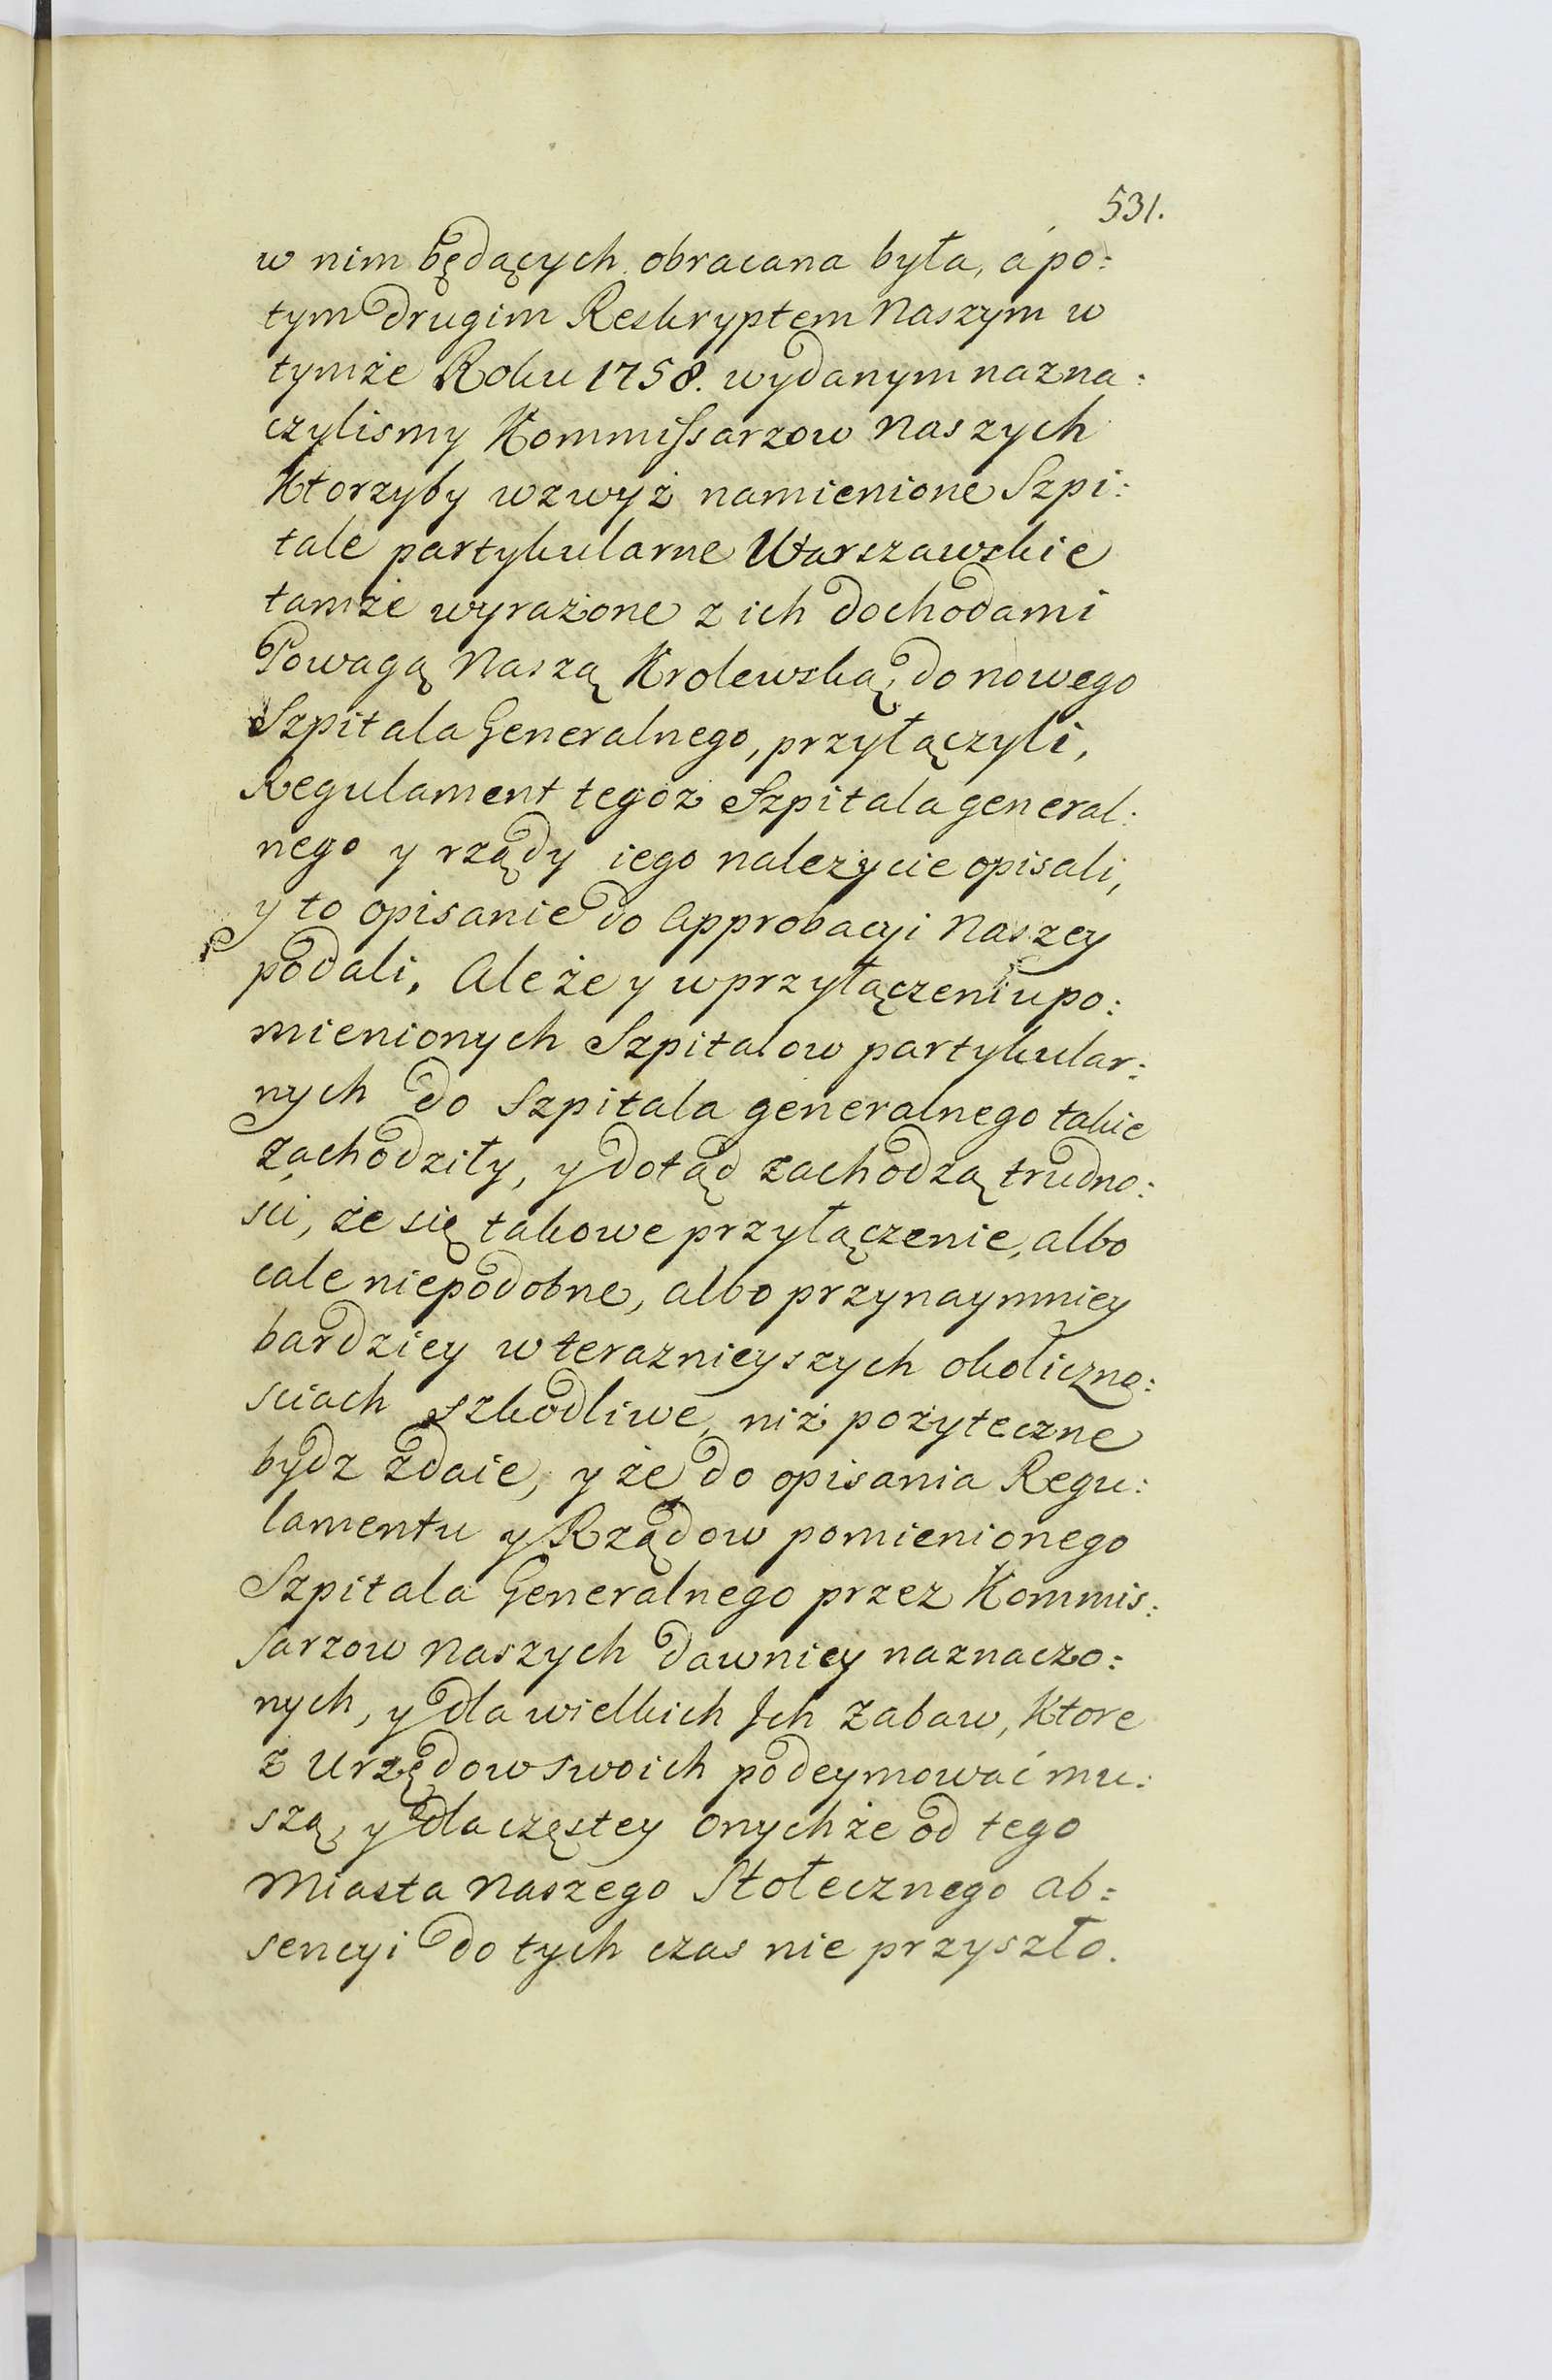 531.
w nim będących obracana była, á po:
tym drugim Reskryptem Naszym w
tymże Roku 1758. wydanym nazna:
czylismy Kommissarzow Naszych
Ktorzyby wzwyż namienione Szpi:
tale partykularne Warszawskie
tamże wyrażone z ich dochodami
Powagą Naszą Krolewską, do nowego
Szpitala Generalnego, przyłączyli,
Regulament tegoż Szpitala general:
nego y rządy iego należycie opisali,
y to opisanie do Approbacyi Naszey
podali. Ale że y w przyłączeniu po:
mienionych Szpitalow partykular:
nych do Szpitala generalnego takie
zachodziły, y dotąd zachodzą trudno:
sci, że się takowe przyłączenie, albo
cale niepodobne, albo przynaymniey
bardziey w teraznieyszych okoliczno:
sciach szkodliwe, niż pożyteczne
bydz zdaie, y że do opisania Regu:
lamentu y Rządow pomienionego
Szpitala Generalnego przez Kommis:
sarzow Naszych dawniey naznaczo:
nych, y dla wielkich Jch zabaw, Ktore
z Urzędow swoich podeymować mu:
szą, y dla częstey onychże od tego
Miasta Naszego Stołecznego ab:
sencyi do tych czas nie przyszło.